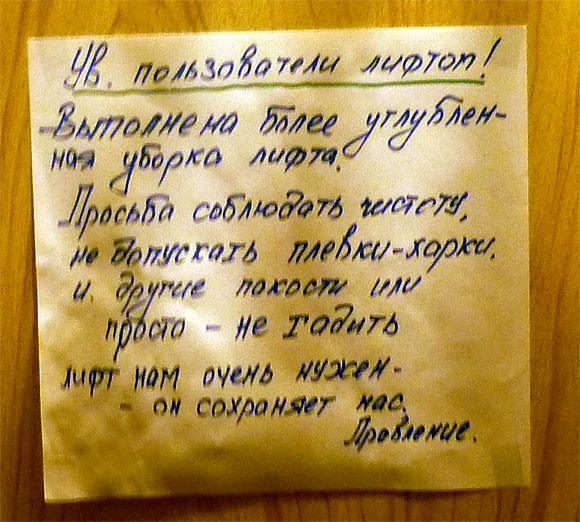 Ув. пользователи лифтом!
-Выполнена более углублен-
ная уборка лифта.
Просьба соблюдать чистоту,
не допускать плевки-харки.
и другие пакости или
просто - не гадить
лифт нам очень нужен-
- он сохраняет нас.
Правление.